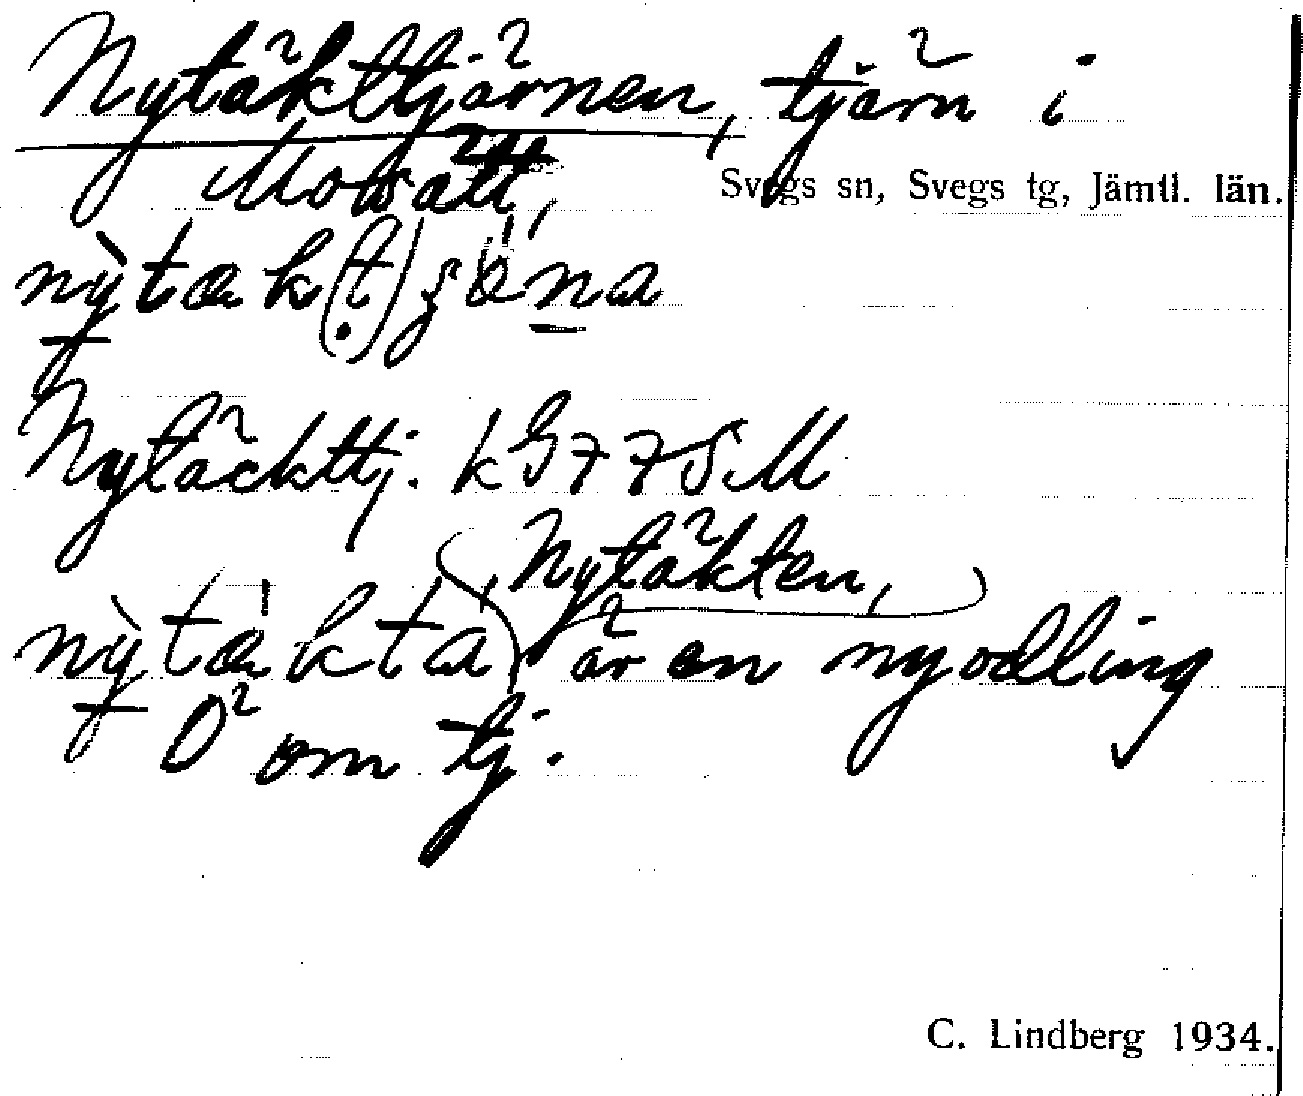 Nytäkttjärnen, tjärn i
Mosätt,
Svegs sn, Svegs tg, Jämtl. län.
nỳtæk(t)
Nytäckttj. k G77SM
Nytäkten,
nỳtækta är en nyodling
O² om tj.
C. Lindberg 1934.